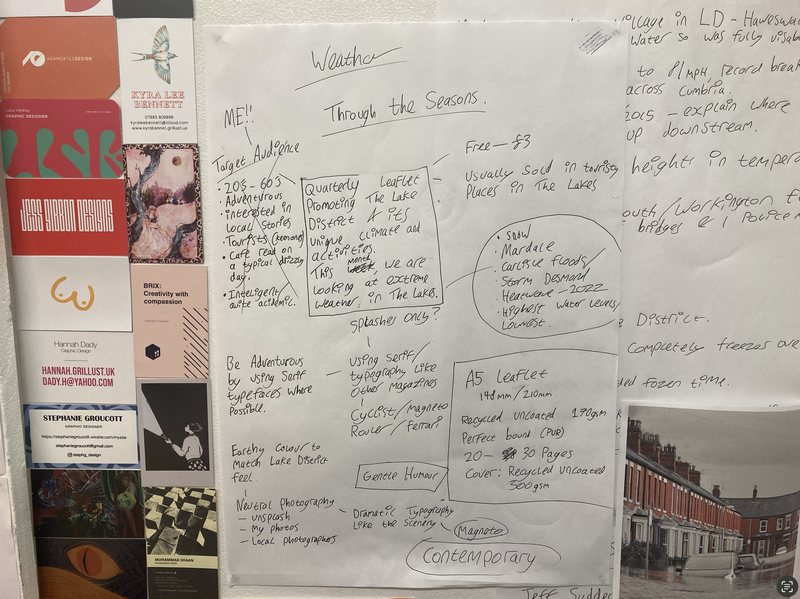 Weather
Through the Seasons.
ME!!
Target Audience
20s - 60s
Adventurous
• interested in
local stories
• Tourists
• Cafe read on
a typical drizzly
day.
• Inteligent,
quite acidemic.
Quarterly Leaflet
Promoting The Lake
District & its
unique climate and
activities.
This month we are
looking at extreme
weather in The Lakes.
Splashes Only?
Free - £3
Usually Sold in touristy
Places in The Lakes
• Snow
• Mardale
• Carlisle floods/
Storm Desmond
• Heatwave - 2022
• Highest Water Levels/
Lowest.
Be Adventurous
by using Serif
typefaces where
Possible.
Using Serif/
typography like
Other Magazines
Cyclist/Magneto
Rouler/Ferrari
A5 Leaflet
148mm/210mm
Recycled uncoated 170gsm
Perfect bound (PUR)
20 - 30 Pages
Cover: Recycled uncoated
300gsm
Earthy Colour to
Match Lake District
feel.
Gentle Humour
Neutral Photography
- Unsplash
- My photos
- Local photographers
Dramatic Typography
Like the Scenery
Magneto
Contemporary
village in LD - Haweswater
Water so was fully visable
to 81MPH, record break
across Cumbria.
2015 - explain where
up downstream.
heights in tempera
outh/Workington
bridges & 1 Police
District.
Completely freezes over
Jeff Sudder
ADAMGATESDESIGN
KYRA LEE
BENNETT
07985 809899
kyraleebennett@icloud.com
www.kyrabennet.grillust.uk
GRAPHIC DESIGNER
JESS GIBBON DESIGNS
BRIX:
Creativity with
compassion
Hannah Dady
Graphic Design
HANNAH.GRILLUST.UK
DADY.H@YAHOO.COM
STEPHANIE GROUCOTT
GRAPHIC DESIGNER
https://stephaniegroucott.wixsite.com/mysite
stephaniegroucott@gmail.com
@stephg_design
MUHAMMAD SHAAN